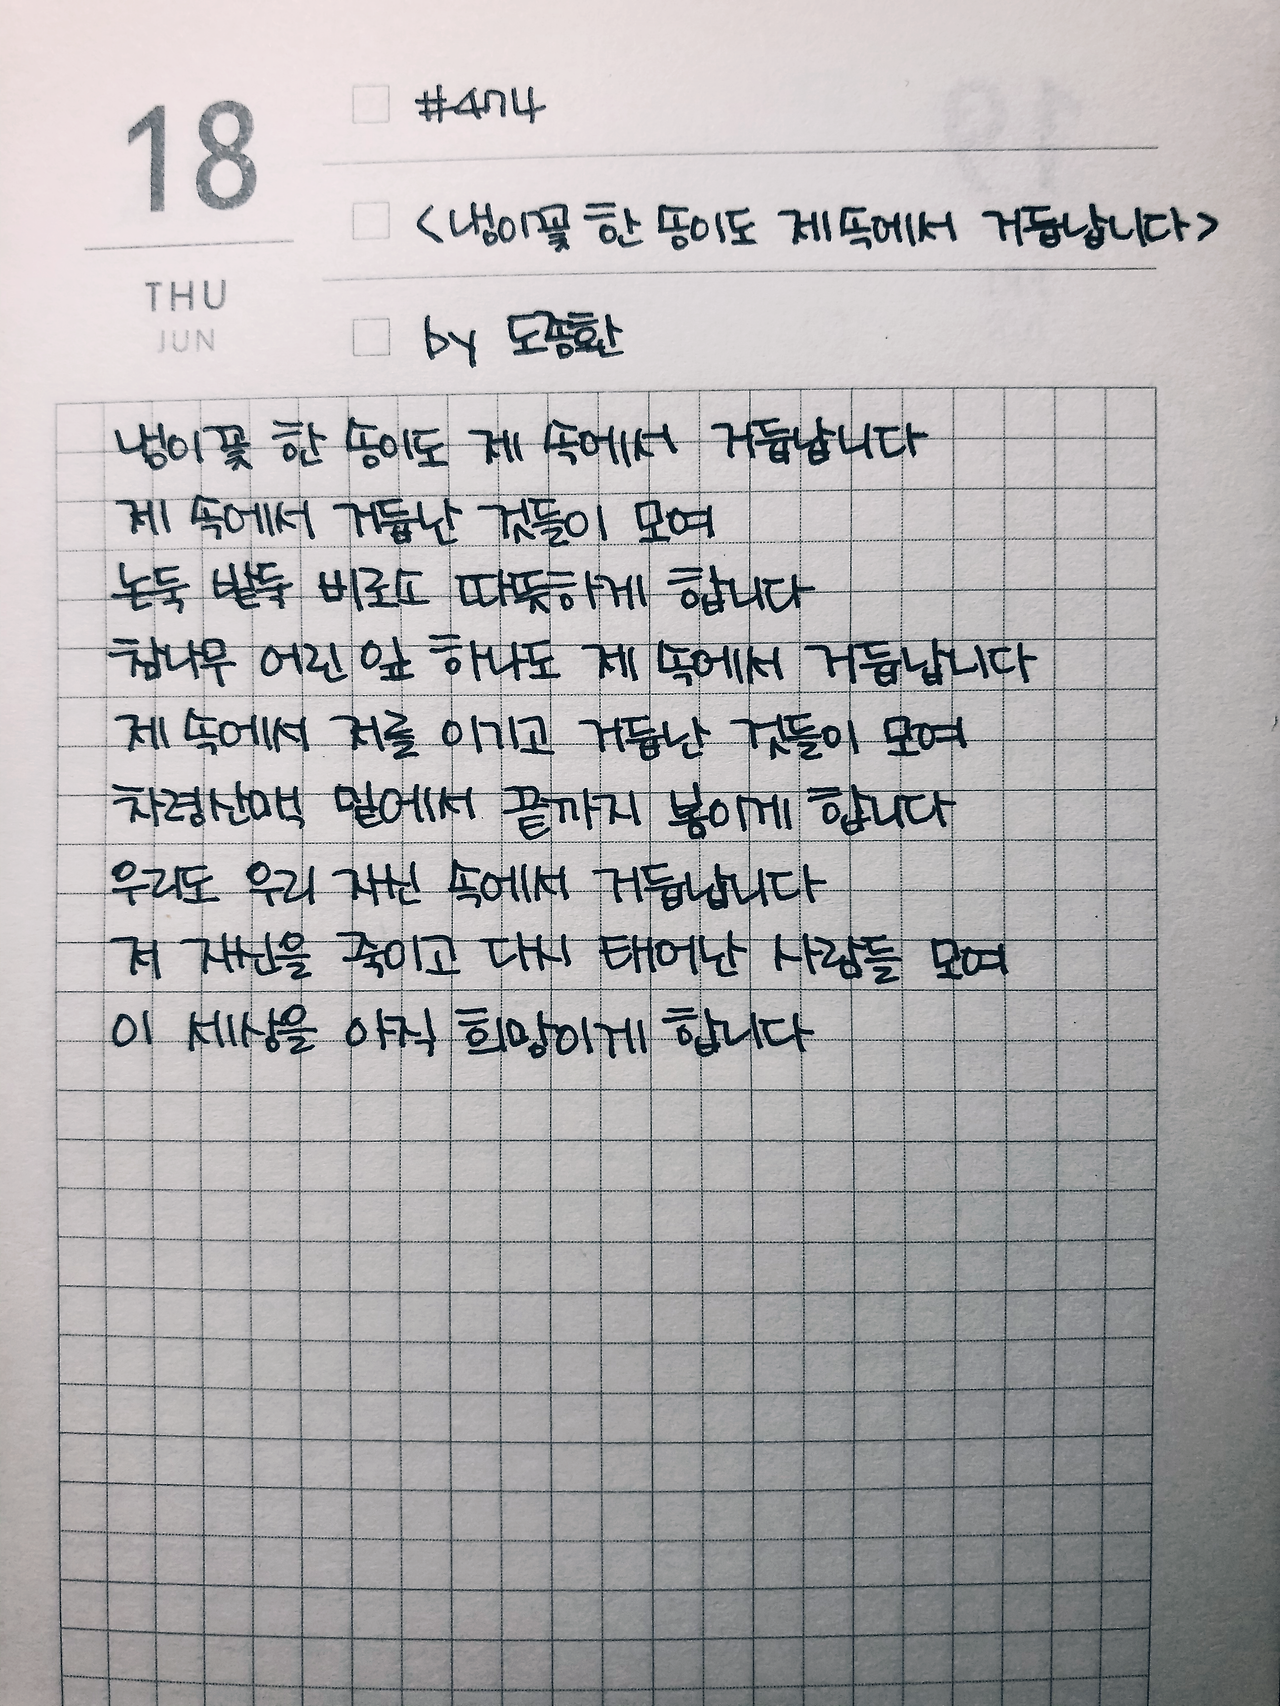 18
THU
JUN
#474
<냉이꽃 한 송이도 제 속에서 거듭납니다>
by 도종환
냉이꽃 한 송이도 제 속에서 거듭납니다
제 속에서 거듭난 것들이 모여
논둑 밭둑 비로소 따뜻하게 합니다
참나무 어린 잎 하나도 제 속에서 거듭납니다
제 속에서 저를 이기고 거듭난 것들이 모여
차령산맥 밑에서 끝까지 봄이게 합니다
우리도 우리 자신 속에서 거듭납니다
저 자신을 죽이고 다시 태어난 사람들 모여
이 세상을 아직 희망이게 합니다